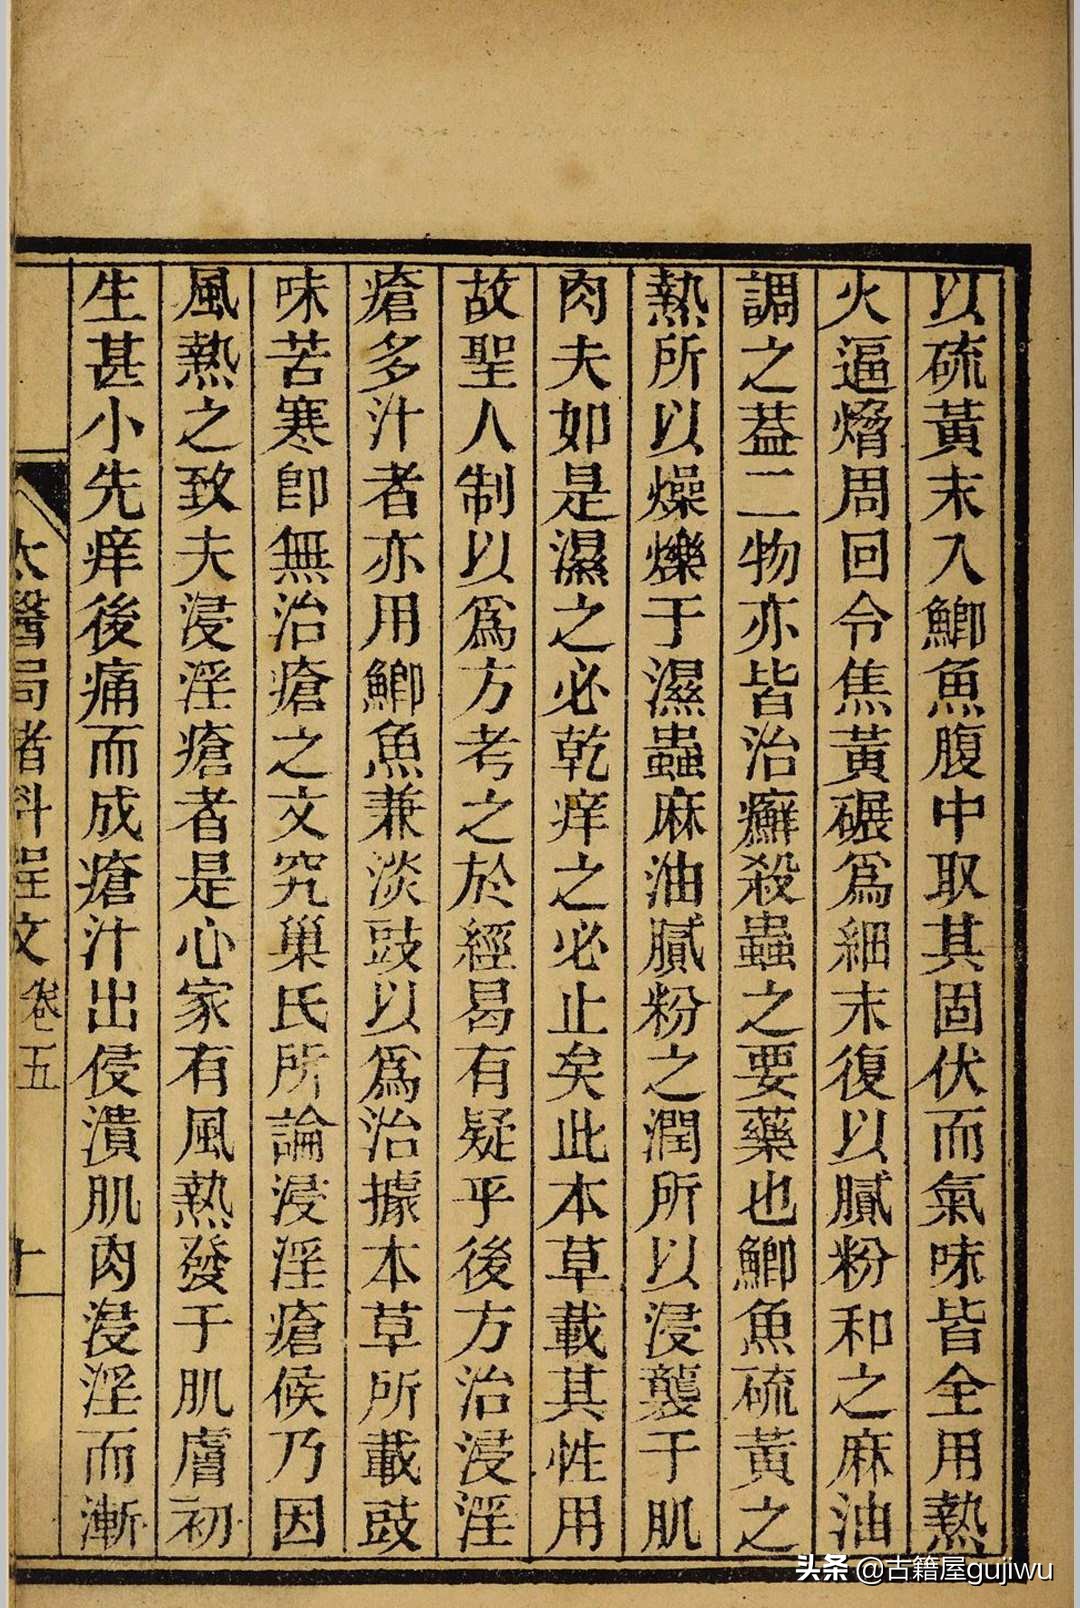 以硫黃末入鯽魚腹中取其固伏而氣味皆全用熱
火逼熁周回令焦黃碾爲細末復以膩粉和之麻油
調之葢二物亦皆治癬殺蟲之要藥也鯽魚硫黃之
熱所以燥爍于濕蟲麻油膩粉之潤所以浸襲于肌
肉夫如是濕之必乾痒之必止矣此本草載其性用
故聖人制以爲方考之於經曷有疑乎後方治浸淫
瘡多汁者亦用鯽魚兼淡豉以爲治據本草所載豉
味苦寒卽無治瘡之文究巢氏所論浸淫瘡候乃因
風熱之致夫浸淫瘡者是心家有風熱發于肌膚初
生甚小先痒後痛而成瘡汁出侵潰肌肉浸淫而漸
太醫局諸科程文 卷五 十一
头条 @古籍屋gujiwu